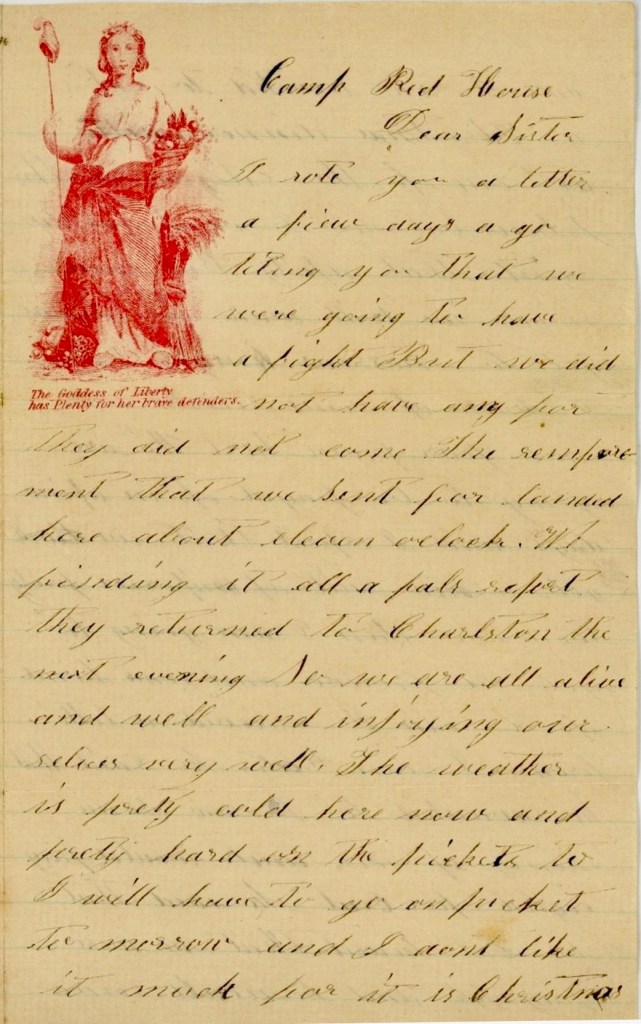 Camp Red House
Dear Sister
I rote you a letter
a fiew days a go
teling you that we
were going to have
a fight But we did
not have any for
they did not come The
ment that we sent for landed
here about eleven oclock.
finding it all a fals report
they returned to Charlston the
next evening So we are all alive
and well and injoying our
selves very well. The weather
is prety cold here now and
prety hard on the pickets to
I will have to go on picket
to morrow and I dont like
it much for it is Christmas
The Goddess of Liberty
has Plenty for her brave defenders.